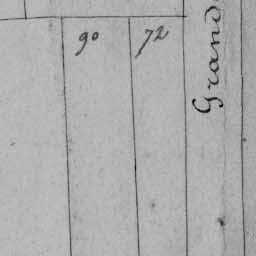 90 72
Grand